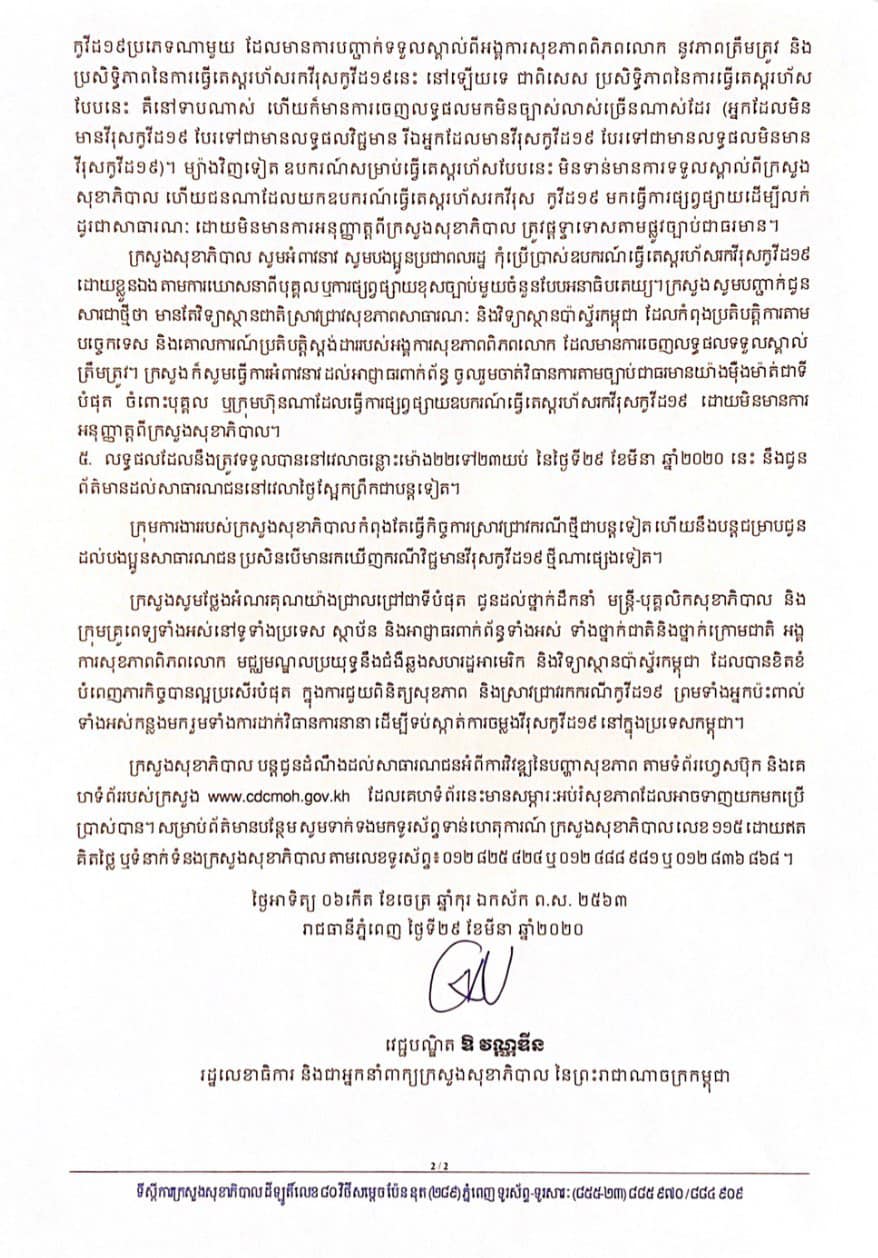 កូវីដ១៩ប្រភេទណាមួយ ដែលមានការបញ្ជាក់ទទួលស្គាល់ពីអង្គការសុខភាពពិភពលោក នូវភាពត្រឹមត្រូវ និង
ប្រសិទ្ធិភាពនៃការធ្វើតេស្តរហ័សរកវីរុសកូវីដ១៩នេះ នៅឡើយទេ ជាពិសេស ប្រសិទ្ធិភាពនៃការធ្វើតេស្តរហ័ស
បែបនេះ គឺនៅទាបណាស់ ហើយក៏មានការចេញលទ្ធផលមកមិនច្បាស់លាស់ច្រើនណាស់ដែរ (អ្នកដែលមិន
មានវីរុសកូវីដ១៩ បែរទៅជាមានលទ្ធផលវិជ្ជមាន រីឯអ្នកដែលមានវីរុសកូវីដ១៩ បែរទៅជាមានលទ្ធផលមិនមាន
វីរុសកូវីដ១៩)។ ម្យ៉ាងវិញទៀត ឧបករណ៍សម្រាប់ធ្វើតេស្តរហ័សបែបនេះ មិនទាន់មានការទទួលស្គាល់ពីក្រសួង
សុខាភិបាល ហើយជនណាដែលយកឧបករណ៍ធ្វើតេស្តរហ័សរកវីរុស កូវីដ១៩ មកធ្វើការផ្សព្វផ្សាយដើម្បីលក់
ដូរជាសាធារណៈ ដោយមិនមានការអនុញ្ញាត្តពីក្រសួងសុខាភិបាល ត្រូវផ្តន្ទាទោសតាមផ្លូវច្បាប់ជាធរមាន។
ក្រសួងសុខាភិបាល សូមអំពាវនាវ សូមបងប្អូនប្រជាពលរដ្ឋ កុំប្រើប្រាស់ឧបករណ៍ធ្វើតេស្តរហ័សរកវីរុសកូវីដ១៩
ដោយខ្លួនឯង តាមការឃោសនាពីបុគ្គលឬការផ្សព្វផ្សាយខុសច្បាប់មួយចំនួនបែបអនាធិបតេយ្យ។ ក្រសួង សូមបញ្ជាក់ជូន
សារជាថ្មីថា មានតែវិទ្យាស្ថានជាតិស្រាវជ្រាវសុខភាពសាធារណៈ និងវិទ្យាស្ថានប៉ាស្ទ័រកម្ពុជា ដែលកំពុងប្រតិបត្តិការតាម
បច្ចេកទេស និងគោលការណ៍ប្រតិបត្តិស្តង់ដាររបស់អង្គការសុខភាពពិភពលោក ដែលមានការចេញលទ្ធផលទទួលស្គាល់
ត្រឹមត្រូវ។ ក្រសួង ក៏សូមធ្វើការអំពាវនាវ ដល់អាជ្ញាធរពាក់ព័ន្ធ ចូលរួមចាត់វិធានការតាមច្បាប់ជាធរមានយ៉ាងម៉ឺងម៉ាត់ជាទី
បំផុត ចំពោះបុគ្គល ឬក្រុមហ៊ុនណាដែលធ្វើការផ្សព្វផ្សាយឧបករណ៍ធ្វើតេស្តរហ័សរកវីរុសកូវីដ១៩ ដោយមិនមានការ
អនុញ្ញាត្តពីក្រសួងសុខាភិបាល។
៥. លទ្ធផលដែលនឹងត្រូវទទួលបាននៅវេលាចន្លោះម៉ោង២២ទៅ២៣យប់ នៃថ្ងៃទី២៩ ខែមីនា ឆ្នាំ២០២០ នេះ នឹងជូន
ព័ត៌មានដល់សាធារណជននៅវេលាថ្ងៃស្អែកព្រឹកជាបន្តទៀត។
ក្រុមការងាររបស់ក្រសួងសុខាភិបាល កំពុងតែធ្វើកិច្ចការស្រាវជ្រាវករណីថ្មីជាបន្តទៀត ហើយនឹងបន្តជម្រាបជូន
ដល់បងប្អូនសាធារណជន ប្រសិនបើមានរកឃើញករណីវិជ្ជមានវីរុសកូវីដ១៩ ថ្មីណាផ្សេងទៀត។
ក្រសួងសូមថ្លែងអំណរគុណយ៉ាងជ្រាលជ្រៅជាទីបំផុត ជូនដល់ថ្នាក់ដឹកនាំ មន្ត្រី-បុគ្គលិកសុខាភិបាល និង
ក្រុមគ្រូពេទ្យទាំងអស់នៅទូទាំងប្រទេស ស្ថាប័ន និងអាជ្ញាធរពាក់ព័ន្ធទាំងអស់ ទាំងថ្នាក់ជាតិនិងថ្នាក់ក្រោមជាតិ អង្គ
ការសុខភាពពិភពលោក មជ្ឈមណ្ឌលប្រយុទ្ធនឹងជំងឺឆ្លងសហរដ្ឋអាមេរិក និងវិទ្យាស្ថានប៉ាស្ទ័រកម្ពុជា ដែលបានខិតខំ
បំពេញភារកិច្ចបានល្អប្រសើរបំផុត ក្នុងការជួយពិនិត្យសុខភាព និងស្រាវជ្រាវរកករណីកូវីដ១៩ ព្រមទាំងអ្នកប៉ះពាល់
ទាំងអស់កន្លងមក រួមទាំងការដាក់វិធានការនានា ដើម្បីទប់ស្កាត់ការចម្លងវីរុសកូវីដ១៩ នៅក្នុងប្រទេសកម្ពុជា។
ក្រសួងសុខាភិបាល បន្តជូនដំណឹងដល់សាធារណជនអំពីការវិវឌ្ឍនៃបញ្ហាសុខភាព តាមទំព័រហ្វេសប៊ុក និងគេ
ហទំព័ររបស់ក្រសួង www.cdcmoh.gov.kh ដែលគេហទំព័រនេះមានសម្ភារៈអប់រំសុខភាពដែលអាចទាញយកមកប្រើ
ប្រាស់បាន។ សម្រាប់ព័ត៌មានបន្ថែម សូមទាក់ទងមកទូរស័ព្ទទាន់ហេតុការណ៍ ក្រសួងសុខាភិបាល លេខ ១១៥ ដោយឥត
គិតថ្លៃ ឬទំនាក់ទំនងក្រសួងសុខាភិបាល តាមលេខទូរស័ព្ទ៖ ០១២ ៨២៥ ៤២៤ ឬ ០១២ ៤៨៨ ៩៨១ ឬ ០១២ ៨៣៦ ៨៦៨ ។
ថ្ងៃអាទិត្យ ០៦កើត ខែចេត្រ ឆ្នាំកុរ ឯកស័ក ព.ស. ២៥៦៣
រាជធានីភ្នំពេញ ថ្ងៃទី២៩ ខែមីនា ឆ្នាំ២០២០
វេជ្ជបណ្ឌិត ឱ វណ្ណឌីន
រដ្ឋលេខាធិការ និងជាអ្នកនាំពាក្យក្រសួងសុខាភិបាល នៃព្រះរាជាណាចក្រកម្ពុជា
2/2
ទីស្តីការក្រសួងសុខាភិបាល ដីឡូតិ៍លេខ ៨០ វិថីសម្តេច ប៉ែន នុត (២៨៩) ភ្នំពេញ ទូរស័ព្ទ-ទូរសារៈ (៨៥៥-២៣) ៨៨៥ ៩៧០ / ៨៨៤ ៩០៩